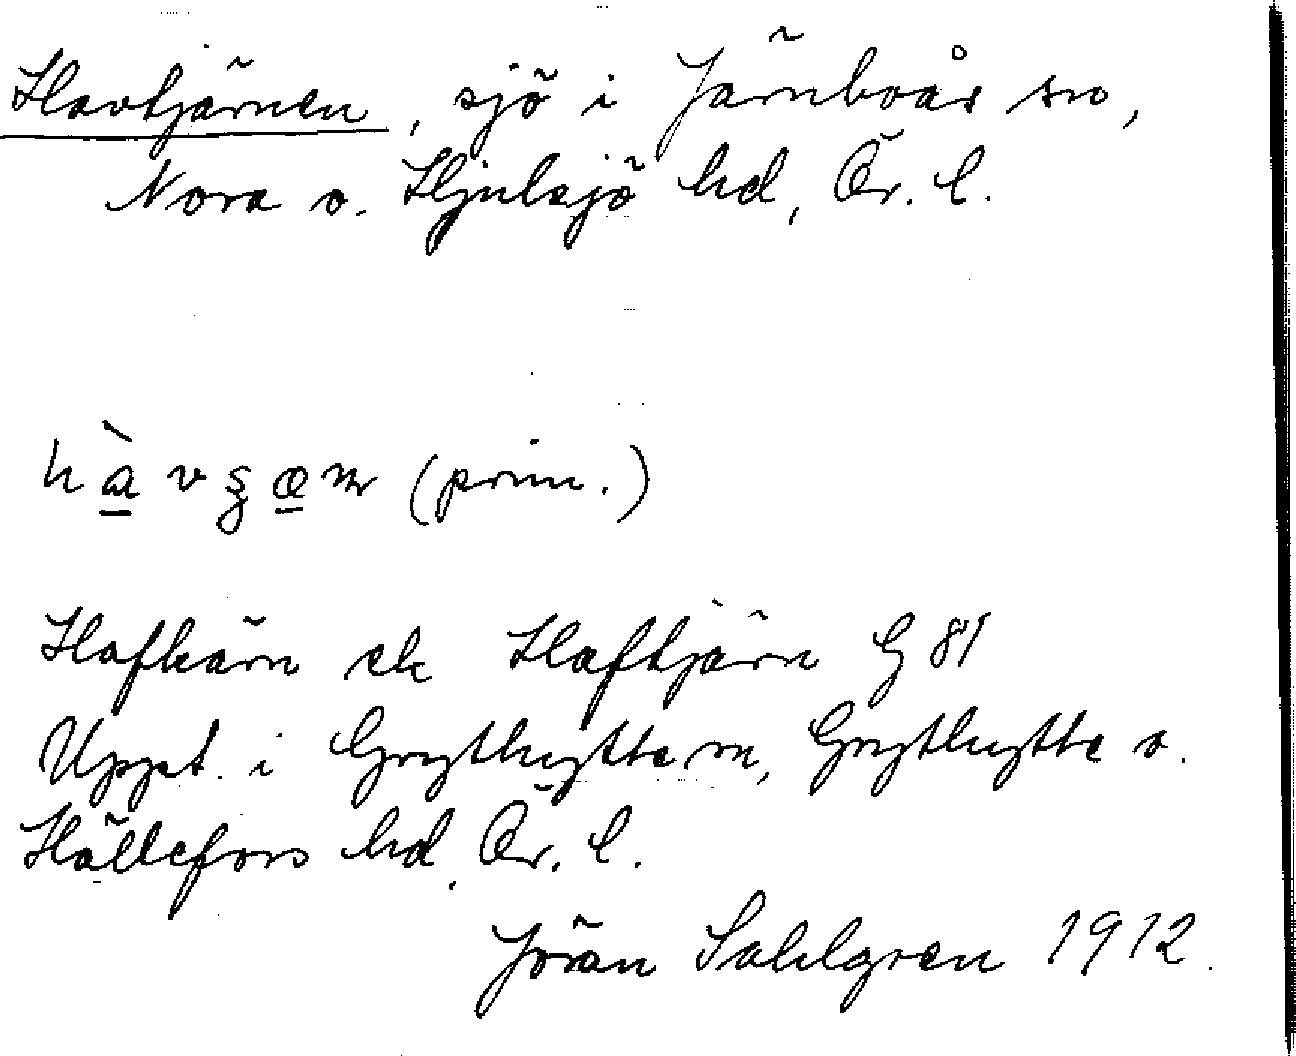 Havtjärnen, sjö i Järnboås sn,
Nora o. Hjulsjö hd, Ör. l.
(prim.)
Hafkärn ek Haftjärn G 81
Uppt. i Grythytte sn, Grythytte o.
Hällefors hd, Ör. l.
Jöran Sahlgren 1912.